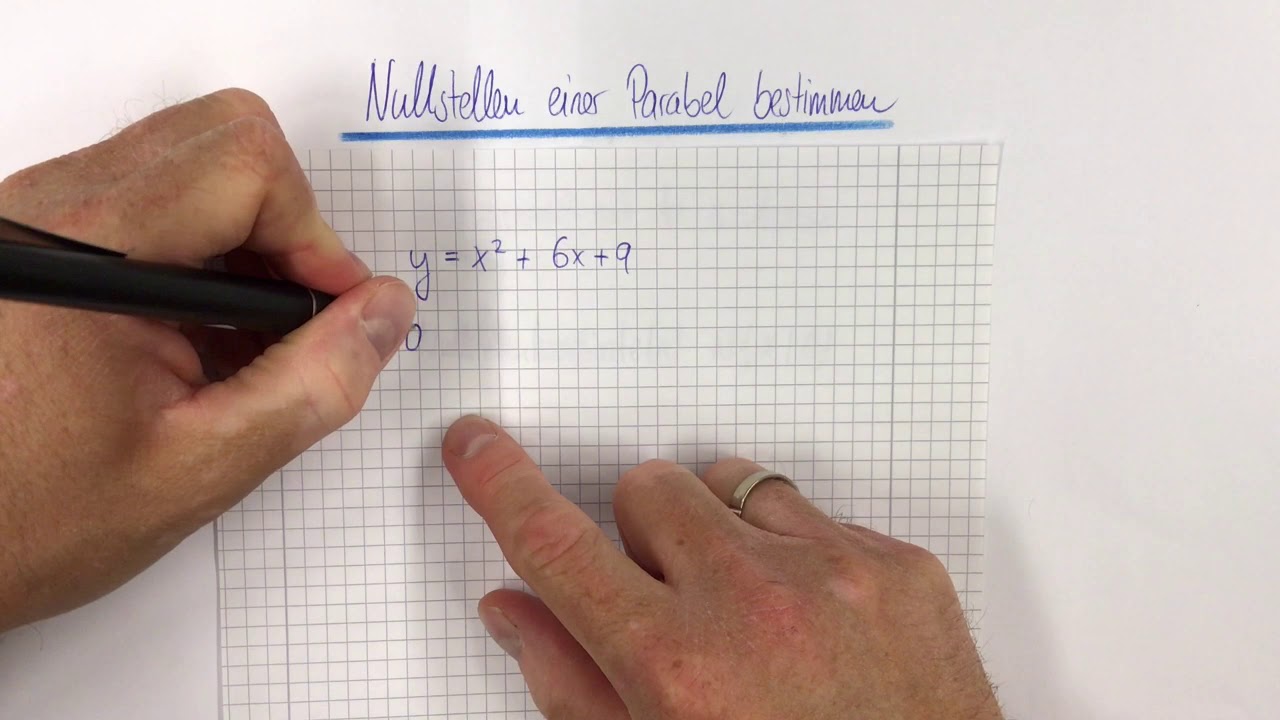 Nullstellen einer Parabel bestimmen
y = x² + 6x + 9
0